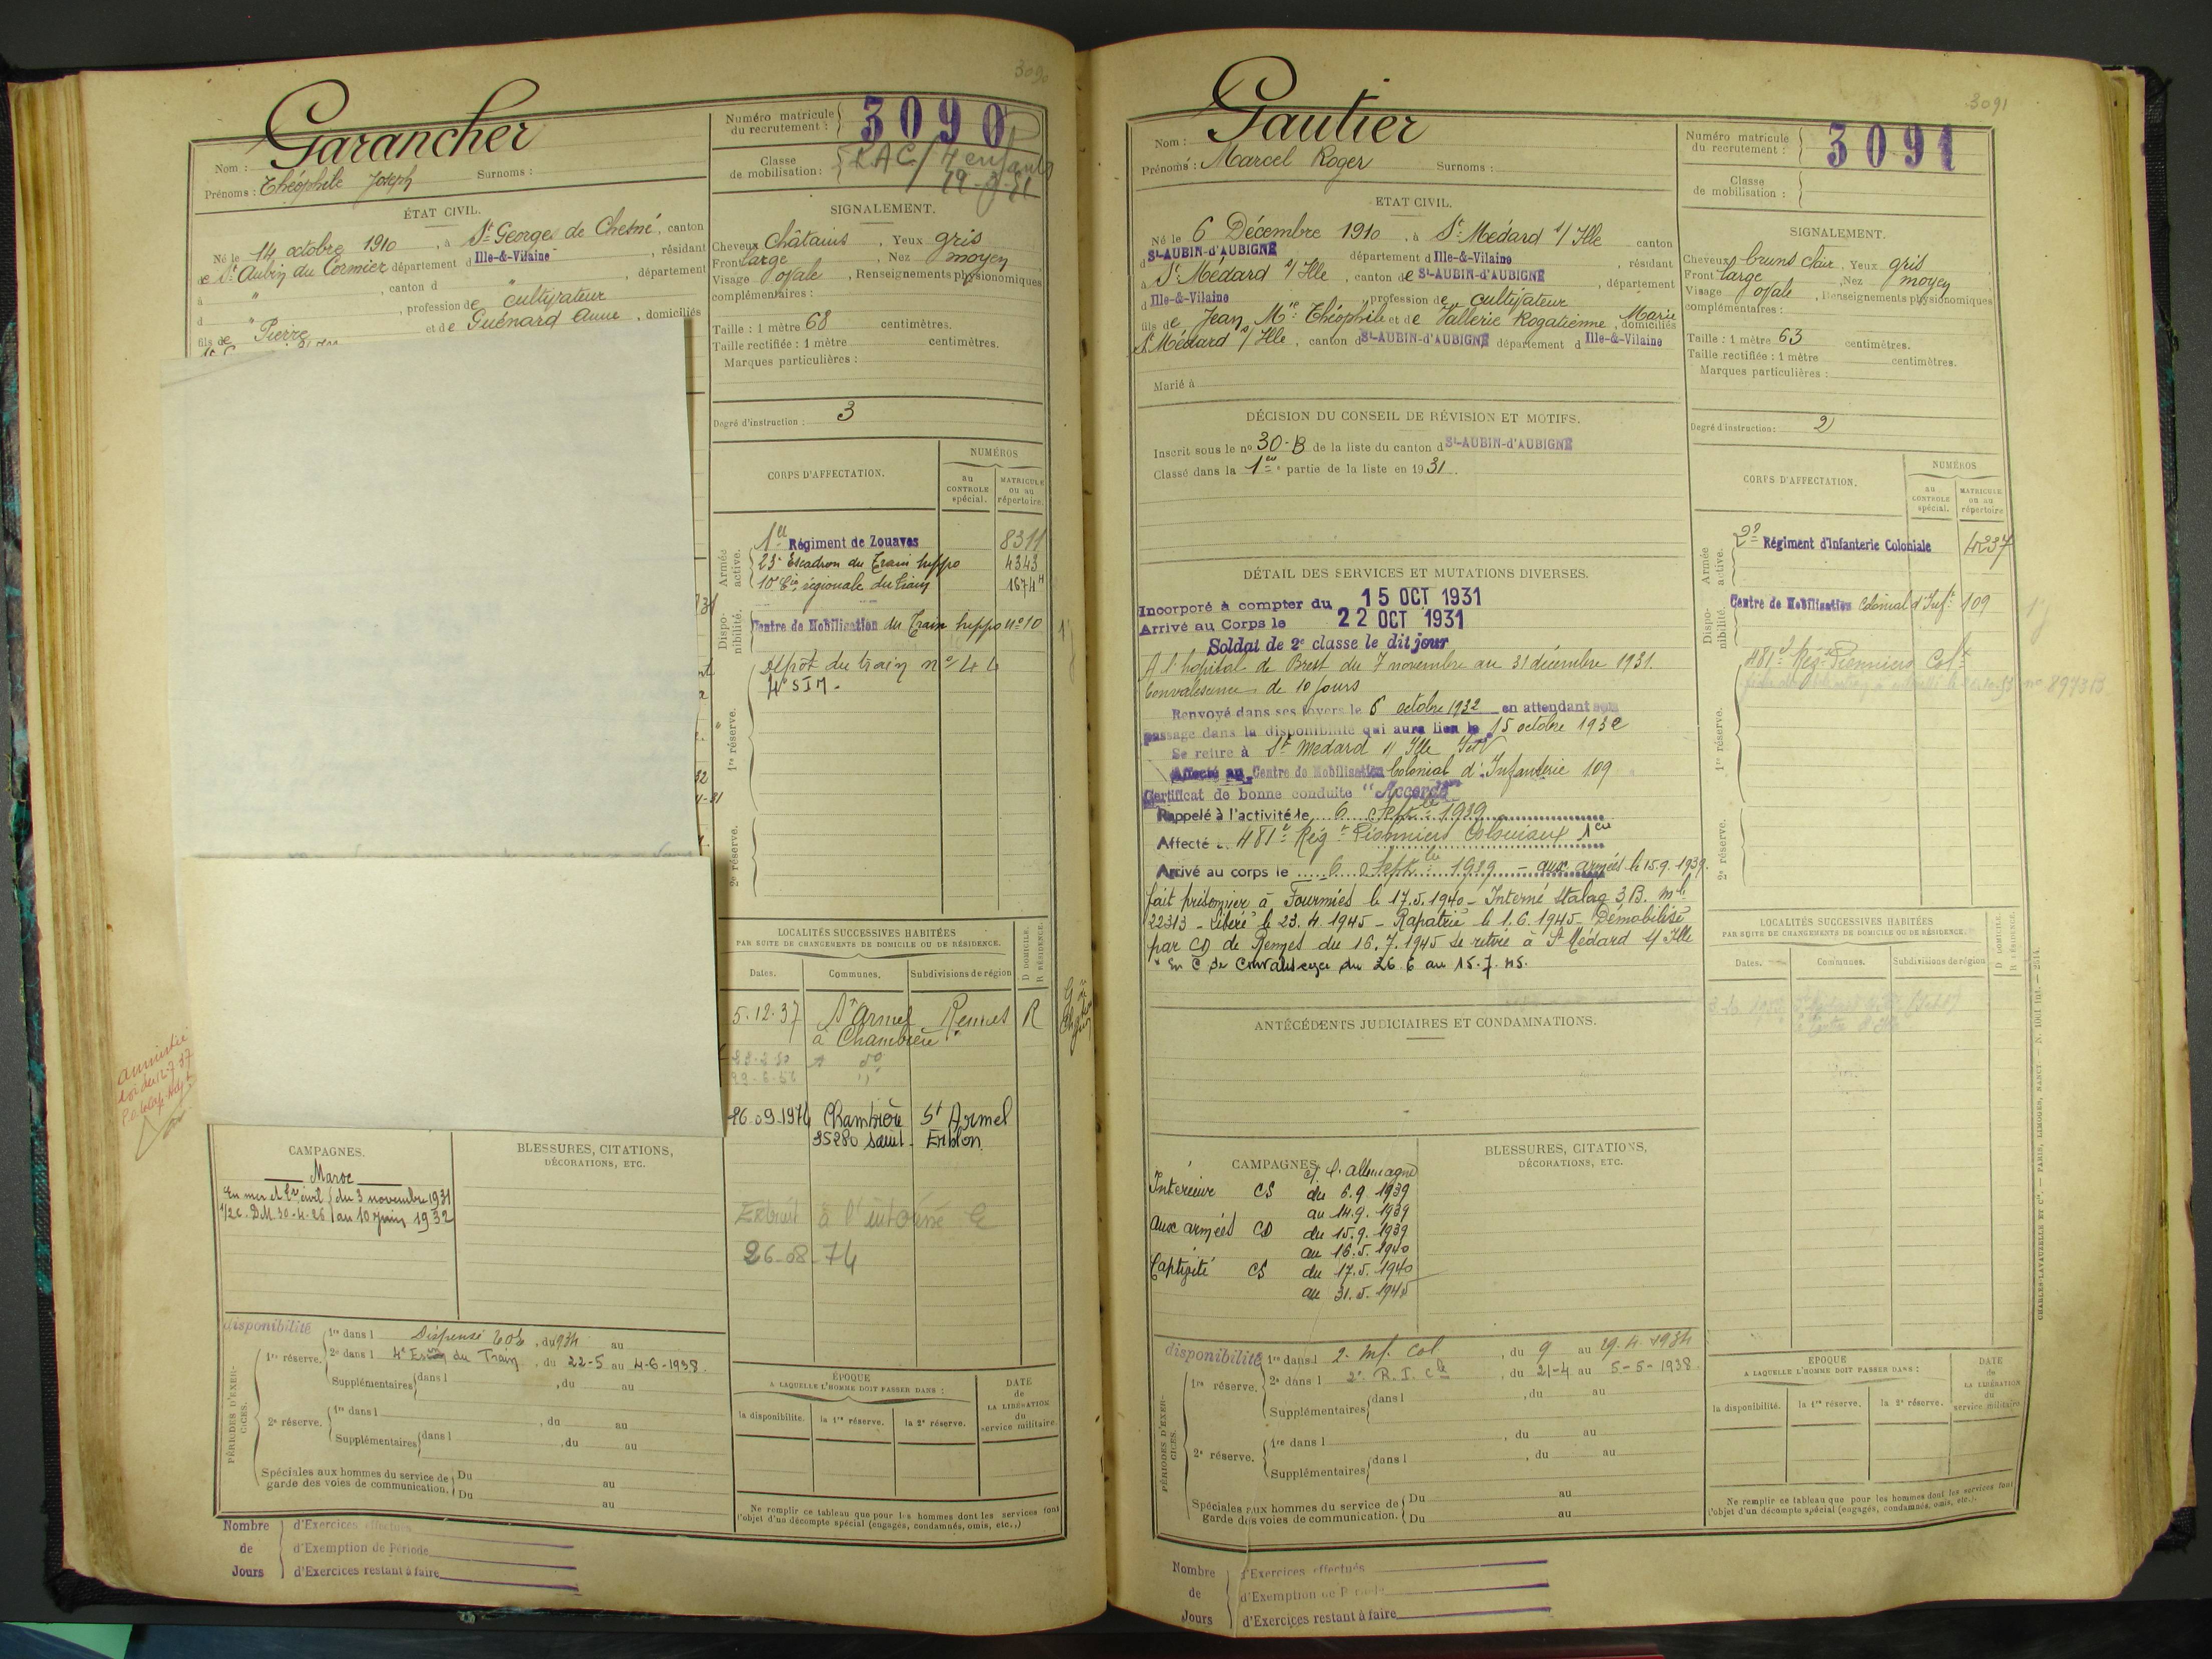 3090
Garancher
Nom :
Prénoms : Théophile Joseph Surnoms :
Numéro matricule du recrutement : 3090
Classe de mobilisation : 4 enfants
ÉTAT CIVIL.
Né le 14 octobre 1910, à St Georges de Chesné, canton
de St Aubin du Cormier département d Ille-&-Vilaine, résidant
à " , canton d " , département
d " , profession de cultivateur
fils de Pierre et de Guénard Anne, domiciliés
SIGNALEMENT.
Cheveux Châtains, Yeux gris
Front large, Nez moyen
Visage ovale, Renseignements physionomiques
complémentaires :
Taille : 1 mètre 68 centimètres.
Taille rectifiée : 1 mètre centimètres.
Marques particulières :
Degré d'instruction : 3
CORPS D'AFFECTATION.
NUMÉROS
au CONTROLE spécial.
MATRICULE ou au répertoire.
Armée active.
1er Régiment de Zouaves 8311
23e Escadron du Train hippo 4343
10e Cie régionale du train 1674
Disponibilité.
Centre de Mobilisation du Train hippo no 10
1re réserve.
Dépôt du train no 44
4e SIM.
2e réserve.
LOCALITÉS SUCCESSIVES HABITÉES
PAR SUITE DE CHANGEMENTS DE DOMICILE OU DE RÉSIDENCE.
D DOMICILE.
R RÉSIDENCE.
Dates. Communes. Subdivisions de région
5.12.37 St Armel Rennes R
à Chambière
26.09.1974 Chambière St Armel
35280 saint Erblon
26-08-74
amnistie
loi du 12-7-37
CAMPAGNES.
Maroc
En mer et du 3 novembre 1931
1/2 c. D.M. 30-4-26 au 10 juin 1932
BLESSURES, CITATIONS,
DÉCORATIONS, ETC.
disponibilité
PÉRIODES D'EXERCICES.
1re réserve.
1re dans l Dispensé , du 934 au
2e dans l 4e Esc du Train, du 22-5 au 4-6-1938.
Supplémentaires dans l , du au
2e réserve.
1re dans l , du au
Supplémentaires dans l , du au
Spéciales aux hommes du service de garde des voies de communication. Du au
Du au
ÉPOQUE
A LAQUELLE L'HOMME DOIT PASSER DANS :
la disponibilité. la 1re réserve. la 2e réserve.
DATE de LA LIBÉRATION du service militaire.
Ne remplir ce tableau que pour les hommes dont les services font
l'objet d'un décompte spécial (engagés, condamnés, omis, etc.,)
Nombre de Jours
d'Exercices effectués
d'Exemption de Période
d'Exercices restant à faire
3091
Gautier
Nom :
Prénoms : Marcel Roger Surnoms :
Numéro matricule du recrutement : 3091
Classe de mobilisation :
ÉTAT CIVIL.
Né le 6 Décembre 1910, à St Médard s/ Ille canton
d St-AUBIN-d'AUBIGNÉ département d Ille-&-Vilaine, résidant
à St Médard s/ Ille, canton de St-AUBIN-d'AUBIGNÉ, département
d Ille-&-Vilaine, profession de cultivateur
fils de Jean Mie Théophile et de Vallerie Rogatienne Marie, domiciliés
St Médard s/ Ille, canton d St-AUBIN-d'AUBIGNÉ département d Ille-&-Vilaine
Marié à
SIGNALEMENT.
Cheveux bruns clair, Yeux gris
Front large, Nez moyen
Visage ovale, Renseignements physionomiques
complémentaires :
Taille : 1 mètre 63 centimètres.
Taille rectifiée : 1 mètre centimètres.
Marques particulières :
Degré d'instruction : 2
DÉCISION DU CONSEIL DE RÉVISION ET MOTIFS.
Inscrit sous le no 30-B de la liste du canton d St-AUBIN-d'AUBIGNÉ
Classé dans la 1ère partie de la liste en 1931.
DÉTAIL DES SERVICES ET MUTATIONS DIVERSES.
Incorporé à compter du 15 OCT 1931
Arrivé au Corps le 22 OCT 1931
Soldat de 2e classe le dit jour
A l'hopital de Brest du 7 novembre au 31 décembre 1931.
Convalescence de 10 jours
Renvoyé dans ses foyers le 6 octobre 1932 en attendant son
passage dans la disponibilité qui aura lieu le 15 octobre 1932
Se retire à St Medard s/ Ille I et V
Affecté au Centre de Mobilisation Colonial d'Infanterie 109
Certificat de bonne conduite "Accordé"
Rappelé à l'activité le 6 Septbre 1939
Affecté 481e Régt Pionniers Coloniaux
Arrivé au corps le 6 Septbre 1939 - aux armées le 15.9.1939.
fait prisonnier à Fourmies le 17.5.1940 - Interné Stalag 3B. mle
22313 - Libéré le 23.4.1945 - Rapatrié le 1.6.1945 - Démobilisé
par CD de Rennes du 16.7.1945 se retire à St Médard s/ Ille
* En C de Convalescence du 26.6 au 15.7.45.
CORPS D'AFFECTATION.
NUMÉROS
au CONTROLE spécial.
MATRICULE ou au répertoire
Armée active.
2e Régiment d'Infanterie Coloniale 4237
Disponibilité.
Centre de Mobilisation Colonial d'Inf. 109
1re réserve.
481e Rég. Pionniers Col.x
2e réserve.
ANTÉCÉDENTS JUDICIAIRES ET CONDAMNATIONS.
LOCALITÉS SUCCESSIVES HABITÉES
PAR SUITE DE CHANGEMENTS DE DOMICILE OU DE RÉSIDENCE.
D DOMICILE.
R RÉSIDENCE.
Dates. Communes. Subdivisions de région
CAMPAGNES
c/ l'allemagne
Intérieure CS du 6.9.1939
au 14.9.1939
aux armées CD du 15.9.1939
au 16.5.1940
Captivité CS du 17.5.1940
au 31.5.1945
BLESSURES, CITATIONS,
DÉCORATIONS, ETC.
disponibilité
PÉRIODES D'EXERCICES.
1re réserve.
1re dans l 2. Inf. Col, du 9 au 29.4.1934
2e dans l 2e R.I.Cle, du 21-4 au 5-5-1938
Supplémentaires dans l , du au
2e réserve.
1re dans l , du au
Supplémentaires dans l , du au
Spéciales aux hommes du service de garde des voies de communication. Du au
Du au
ÉPOQUE
A LAQUELLE L'HOMME DOIT PASSER DANS :
la disponibilité. la 1re réserve. la 2e réserve.
DATE de LA LIBÉRATION du service militaire.
Ne remplir ce tableau que pour les hommes dont les services font
l'objet d'un décompte spécial (engagés, condamnés, omis, etc.).
Nombre de Jours
d'Exercices effectués
d'Exemption de Période
d'Exercices restant à faire
CHARLES-LAVAUZELLE ET Cie. — PARIS, LIMOGES, NANCY